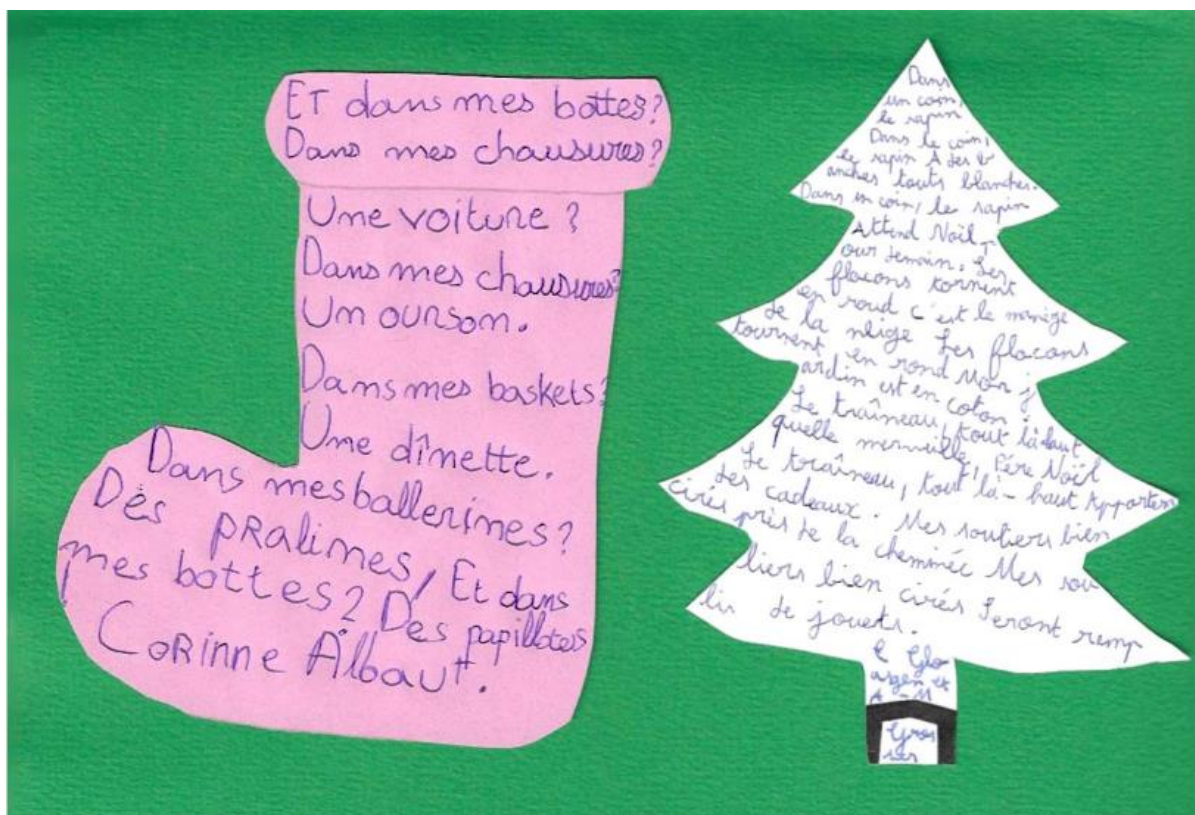 ET dans mes bottes?
Dans mes chausures?
Une voiture?
Dans mes chausures?
Un ourson.
Dans mes baskets?
Une dînette.
Dans mes ballerines?
Dès pralines, Et dans
mes bottes? Des papillotes
Corinne Albaut.
Dans
un coin,
le sapin
Dans le coin,
le sapin A des b
anches touts blanches.
Dans un coin, le sapin
Attend Noël, p
our demain. Les
flocons tornent
en roud c'est le manège
de la neige Les flocons
tournent en rond Mon j
ardin est en coton.
Le traîneau, tout là haut
quelle merveille, Père Noël
Le traîneau, tout là-haut Apporten
des cadeaux. Mes souliers bien
cirés près de la cheminée Mes sou
liers bien cirés Seront remp
lis de jouets.